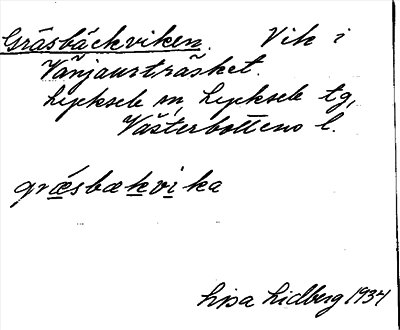 Gräsbäckviken. Vik i
Vänjaurträsket.
Lycksele sn, Lycksele tg,
Västerbottens l.
græsbækvika
Lisa Lidberg 1934